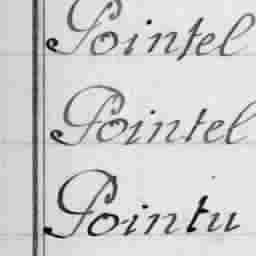 Pointel
Pointel
Pointu